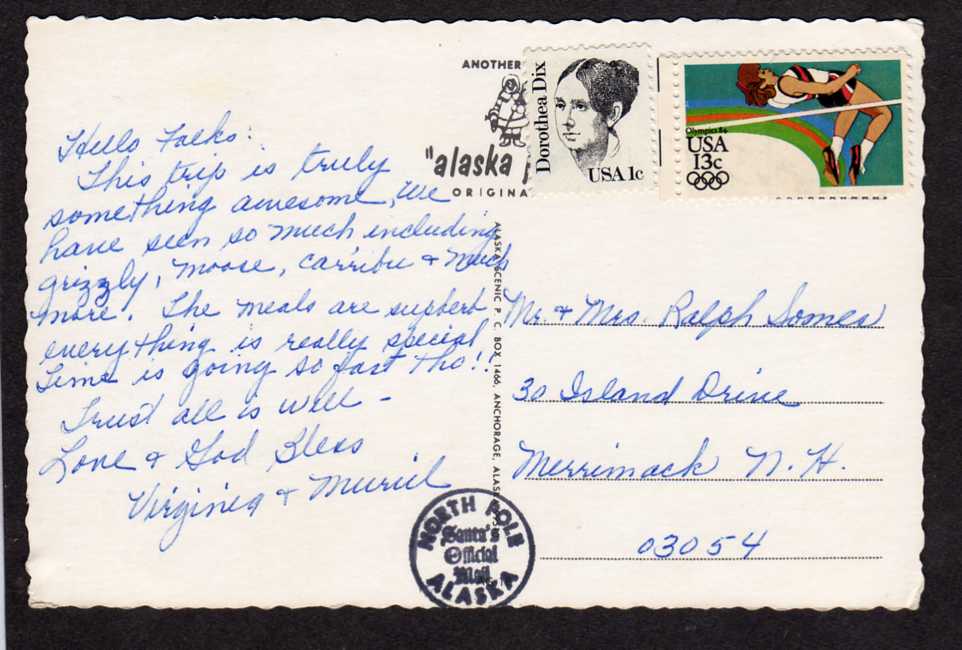 ANOTHER
"alaska
ORIGINA
Dorothea Dix
USA 1c
Olympics 84
USA
13c
Hello Folks:
This trip is truly
something awesome, we
have seen so much including
grizzly, moose, carribu & much
more. The meals are supberb
everything is really special
Time is going so fast tho!!
Trust all is well -
Love & God Bless
Virginia & Muriel
ALASKA SCENIC P. C. BOX 1466, ANCHORAGE, ALAS
Mr. & Mrs. Ralph Somes
30 Island Drive
Merrimack N. H.
03054
NORTH POLE
Santa's
Official
Mail
ALASKA